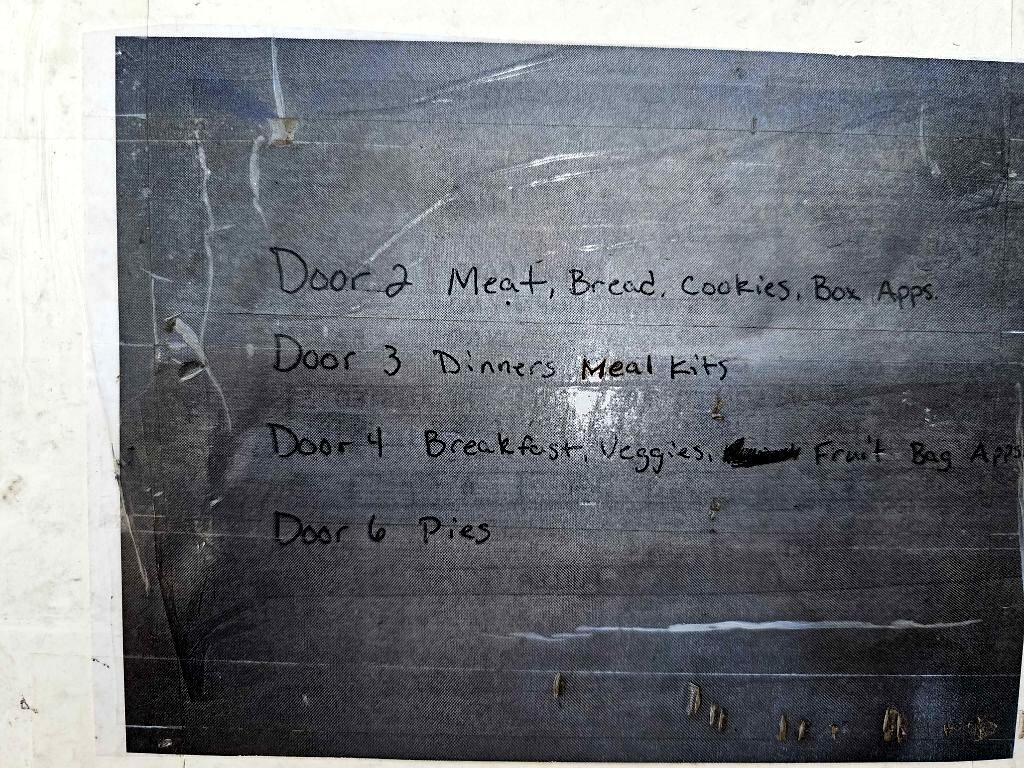 Door 2 Meat, Bread, Cookies, Box Apps.
Door 3 Dinners Meal Kits
Door 4 Breakfast, Veggies, Fruit Bag Apps
Door 6 Pies